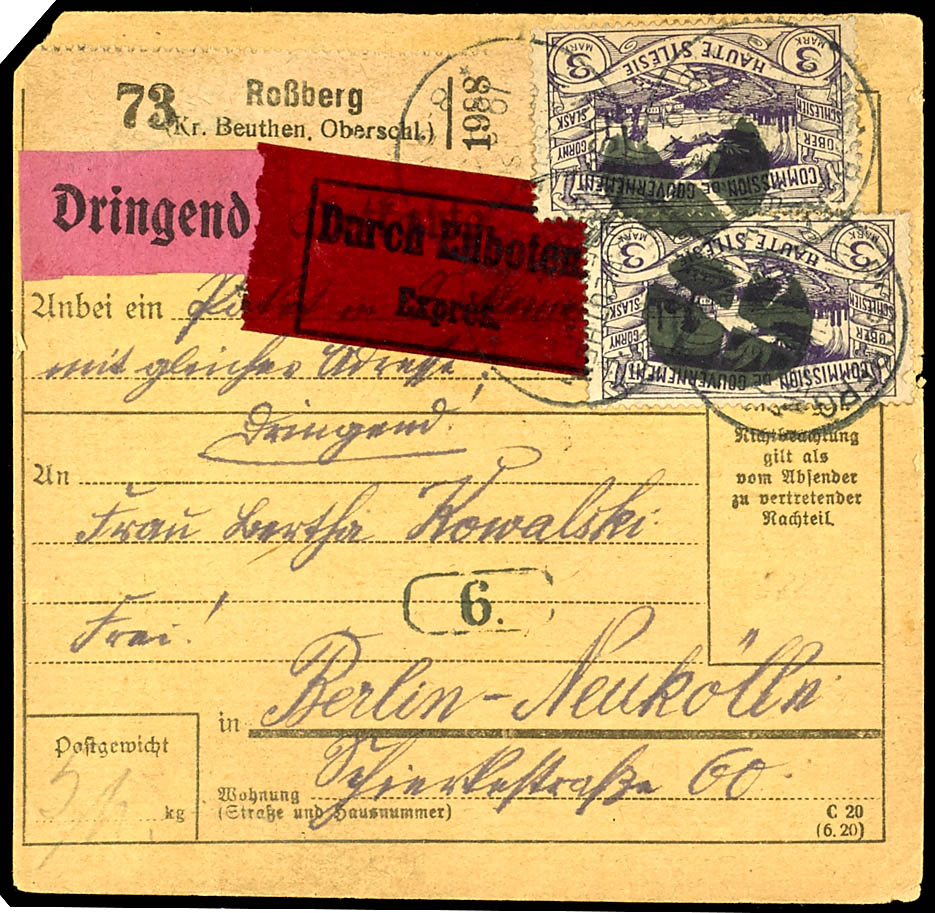 73
Roßberg
(Kr. Beuthen, Oberschl.)
8
1988
Dringend
Durch Eilboten
Exprès.
3 MARK
HAUTE SILESIE
3 MARK
GORNY SLASK
OBER SCHLESIEN
COMMISSION DE GOUVERNEMENT
3 MARK
HAUTE SILESIE
3 MARK
GORNY SLASK
OBER SCHLESIEN
COMMISSION DE GOUVERNEMENT
Anbei ein Paket in
mit gleicher Adresse!
Dringend!
Nichtbeachtung
gilt als
vom Absender
zu vertretender
Nachteil.
An
Frau Bertha Kowalski
6.
Frei!
in Berlin-Neukölln
Schierkestraße 60.
Postgewicht
kg
Wohnung
(Straße und Hausnummer)
C 20
(6.20)